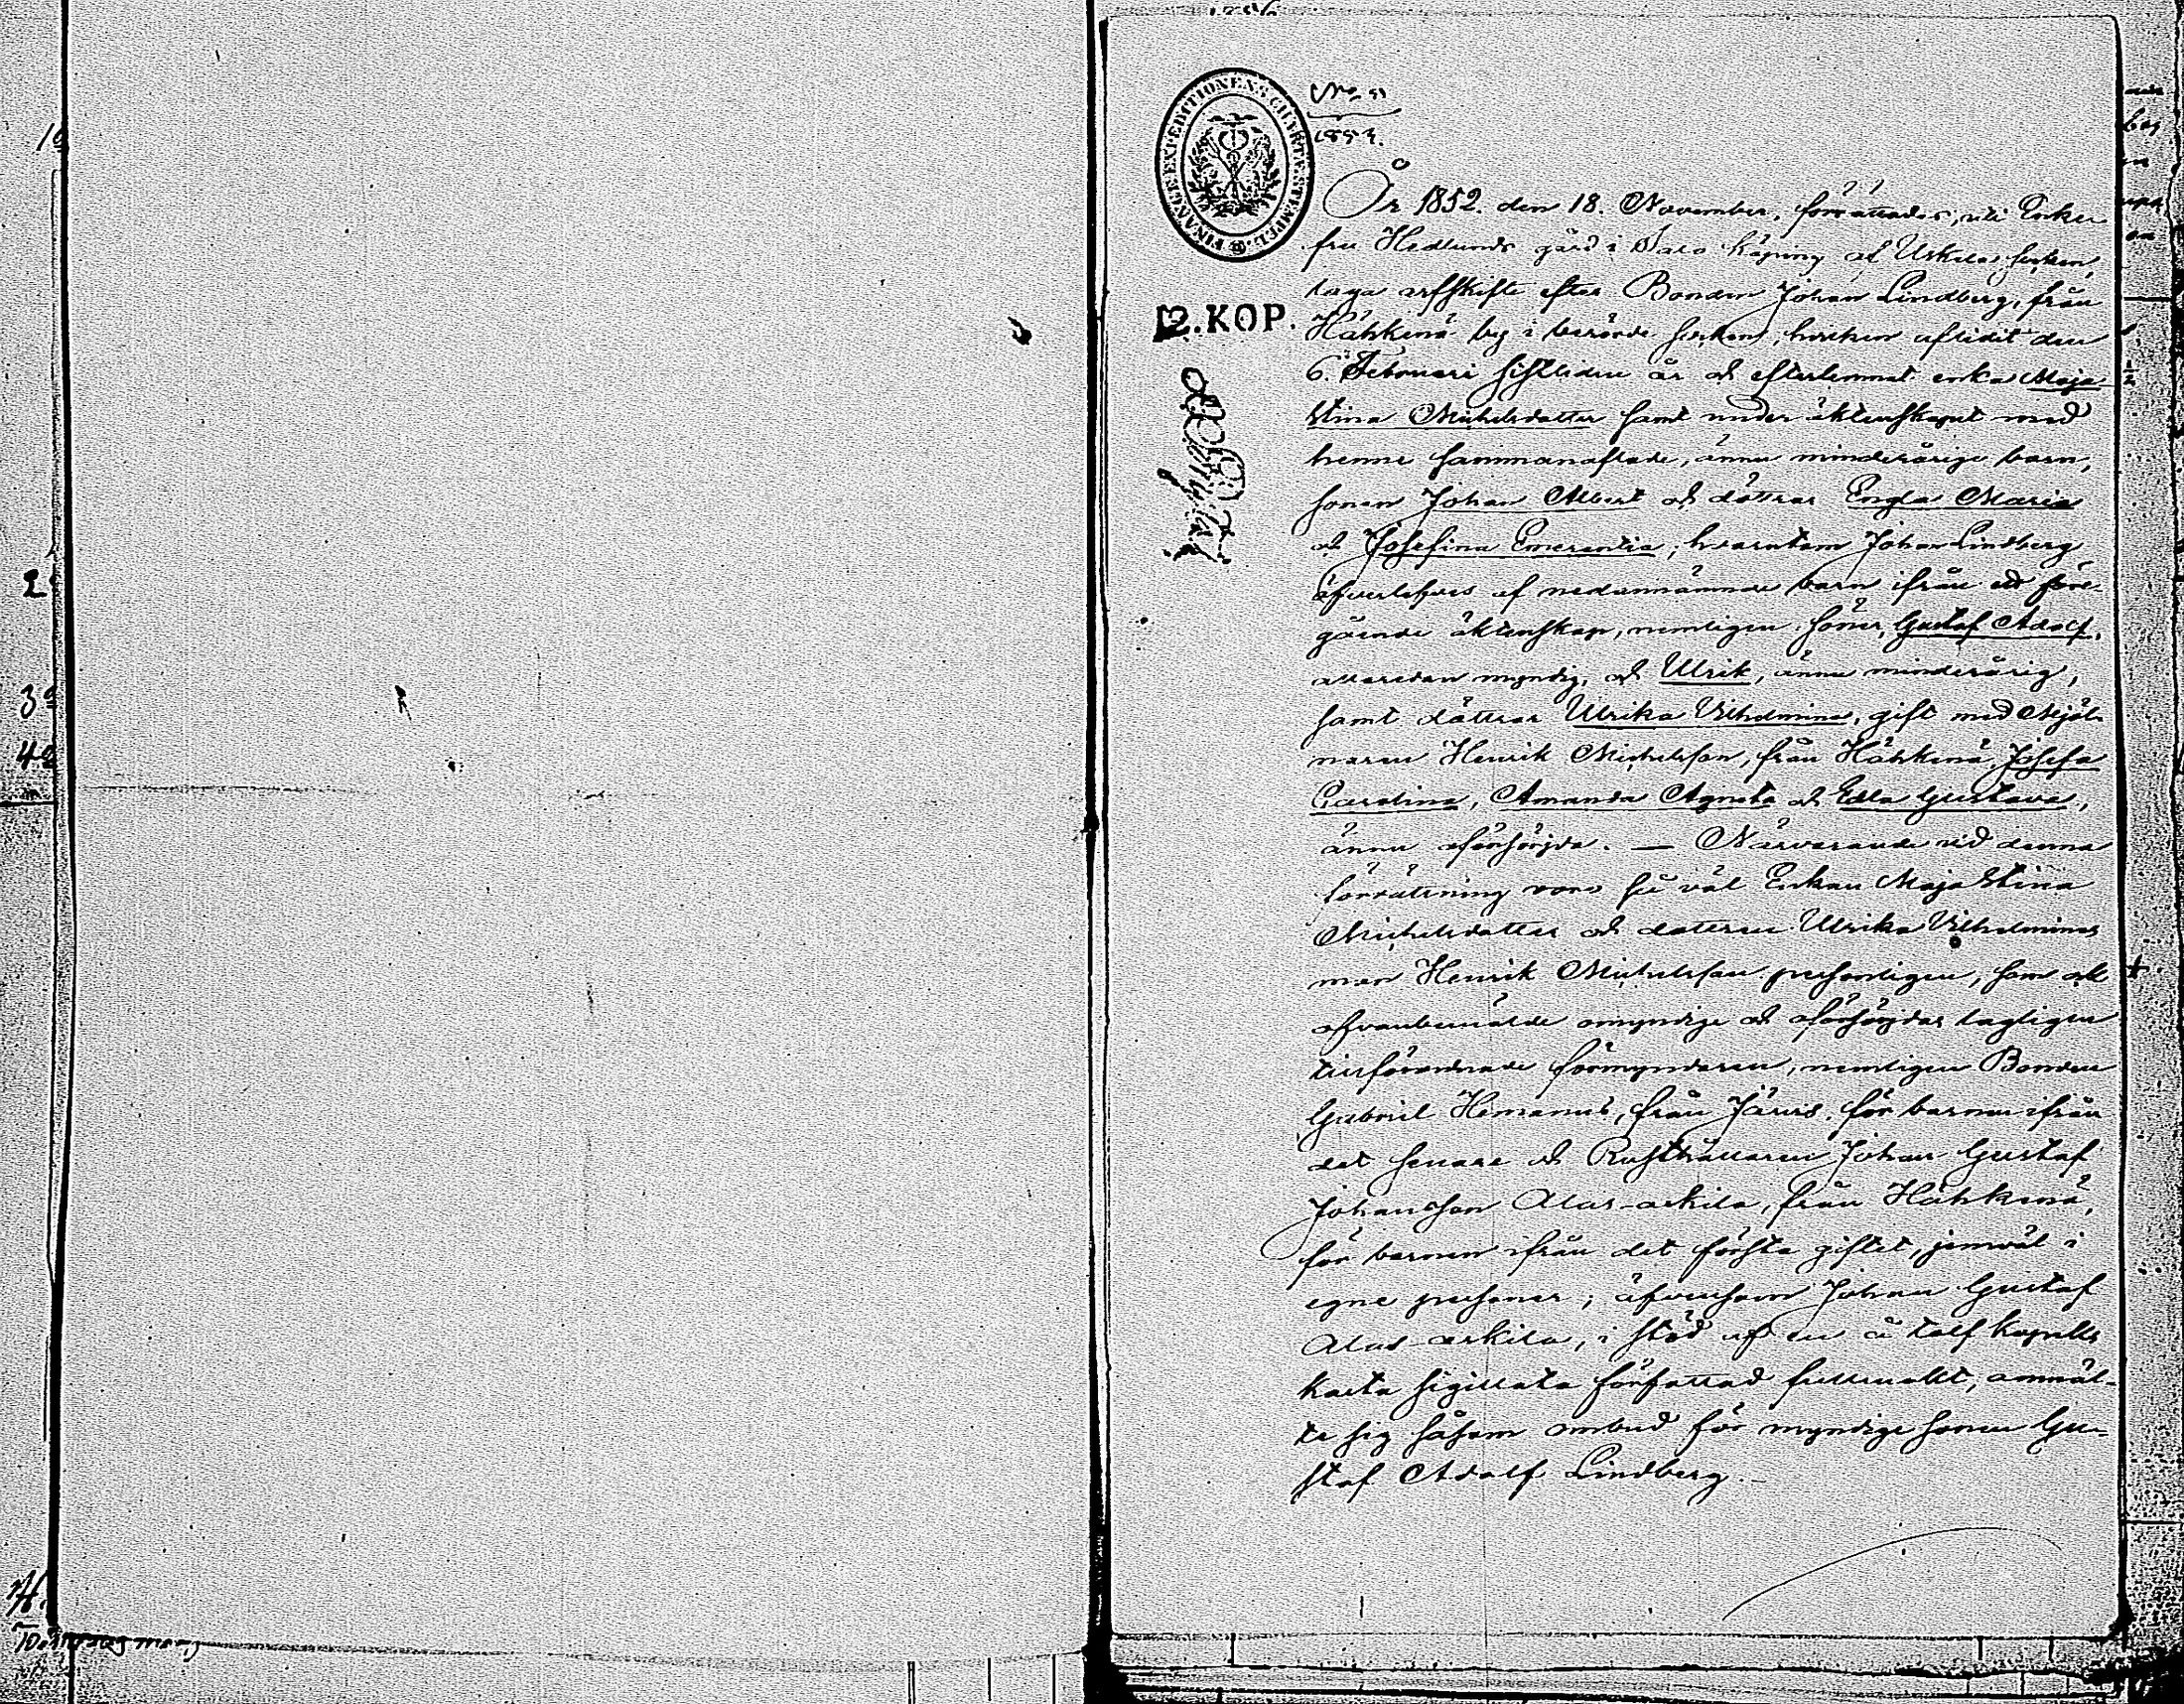 FINANCE EXPEDITIONENS CHARTÆ STEMPEL.
12. KOP.
1852.
År 1852. den 18. November, förrättades, uti Enke
fru Hedlunds gård i Salo köping af Uskela socken,
laga arfskifte efter Bonden Johan Lindberg, från
Hähkänä by i berörde socken, hvilken aflidit den
6. Februari sistliden år och efterlemnat enka Maja
Stina Michelsdotter samt under äktenskapet med
henne sammanaflade, ännu minderårige barn,
sonen Johan Albert och döttrar Engla Maria
och Josefina Emerentia; hvarutom Johan Lindberg
öfverlefves af nedannämnde barn ifrån ett före-
gående äktenskap, nemligen söner, Gustaf Adolf,
allaredan myndig, och Ulrik, ännu minderårig,
samt döttrar Ulrika Vilhelmina, gift med Mjöl-
naren Henrik Michelsson, från Hähkänä, Josefa
Carolina, Amanda Agneta och Edla Gustava,
ännu oförsörjda. — Närvarande vid denna
förrättning voro så väl Enkan Maja Stina
Michelsdotter och dottren Ulrika Vilhelminas
man Henrik Michelsson personligen, som ock
ofvanbemälde omyndige och oförsörjdas lagligen
tillförordnade förmyndaren, nemligen Bonden
Gabriel Hemanus, från Järvis, för barnen ifrån
det senare och Rusthållaren Johan Gustaf
Johansson Alas-arkila, från Hähkänä,
för barnen ifrån det första giftet, jemväl i
egne personer; äfvensom Johan Gustaf
Alas-arkila, i stöd af en å tolf kopeks
karta sigillata författad fullmakt, anmäl-
te sig såsom ombud för myndige sonen Gu-
staf Adolf Lindberg.—